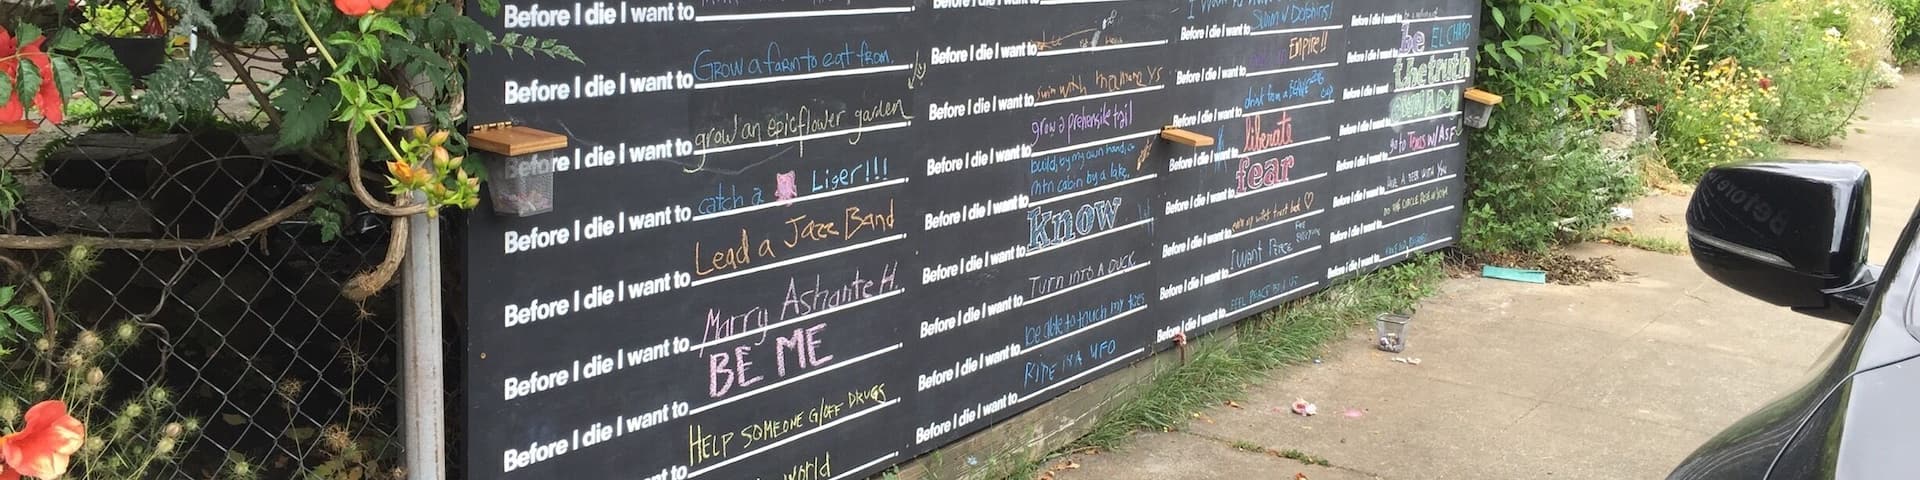 Before I die I want to
Before I die I want to Grow a farm to eat from.
Before I die I want to grow an epic flower garden
Before I die I want to catch a Liger!!!
Before I die I want to Lead a Jazz Band
Before I die I want to Marry Ashante H.
Before I die I want to BE ME
Before I die I want to HELP SOMEONE G/OFF DRUGS
to world
Before I die I want to
Before I die I want to swim with
Before I die I want to grow a prehensile tail
Before I die I want to build, by my own hand, a
mtn cabin by a lake.
Before I die I want to know
Before I die I want to TURN INTO A DUCK
Before I die I want to be able to touch my toes
Before I die I want to RIDE IN A UFO
Before I die I want to
Before I die I want to Swim w Dolphins!
Before I die I want to EMPIRE!!
Before I die I want to drink from a
Before I die I want to liberate
Before I die I want to fear
Before I die I want to
Before I die I want to I WANT PEACE
Before I die I want to FEEL PEACE
Before I die I want to
Before I die I want to be EL CHAPO
Before I die I want the truth
Before I die I want to
Before I die I want to go to
Before I die I want to HAVE A BEER WITH YOU
Before I die I want to
Before I die I want to